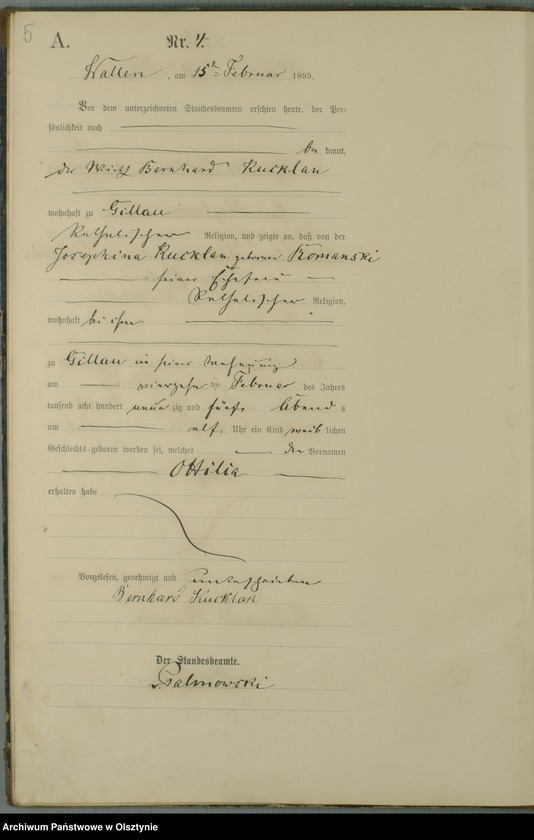 5
A.
Nr. 4.
Wallen, am 15ten Februar 1895.
Vor dem unterzeichneten Standesbeamten erschien heute, der Per-
sönlichkeit nach
be kannt,
der Wirth Bernhard Kucklan
wohnhaft zu Gillau
Katholischer Religion, und zeigte an, daß von der
Josephina Kucklan geborene Romanski
seiner Ehefrau
Katholischer Religion,
wohnhaft bei ihm
zu Gillau in seiner Wohnung
am vierzehn ten Februar des Jahres
tausend acht hundert neun zig und fünf Abend s
um elf Uhr ein Kind weib lichen
Geschlechts geboren worden sei, welches den Vornamen
Ottilia
erhalten habe
Vorgelesen, genehmigt und unterschrieben
Bernhard Kucklan
Der Standesbeamte.
Palmowski
Archiwum Państwowe w Olsztynie